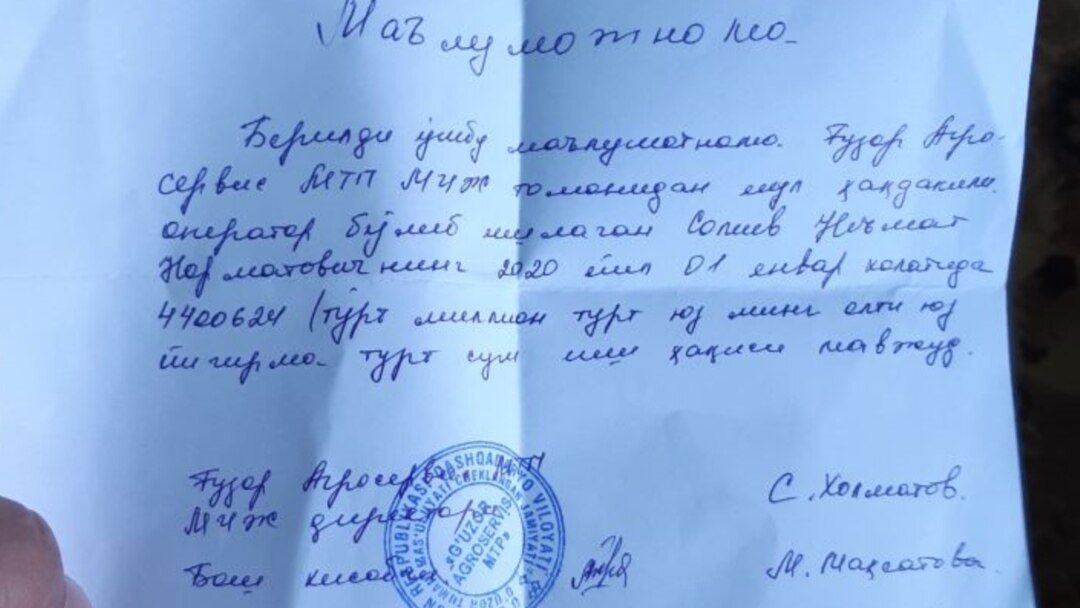 Маълумотнома
Берилди ушбу маълумотнома Ғузор Агро-
сервис МТП МЧЖ томонидан шул ҳақдаким
оператор бўлиб ишлаган Солиев Неъмат
Норматовичнинг 2020 йил 01 январ холатида
4400624 (тўрт миллион турт юз минг олти юз
йигирма турт сум иш ҳақиси мавжуд.
Ғузор Агросервис МТП
МЧЖ директори С. Холматов.
Бош хисобчи М. Махсатова
QASHQADARYO VILOYATI
MAS'ULIYATI CHEKLANGAN JAMIYATI
«G'UZOR
AGROSERVIS
MTP»